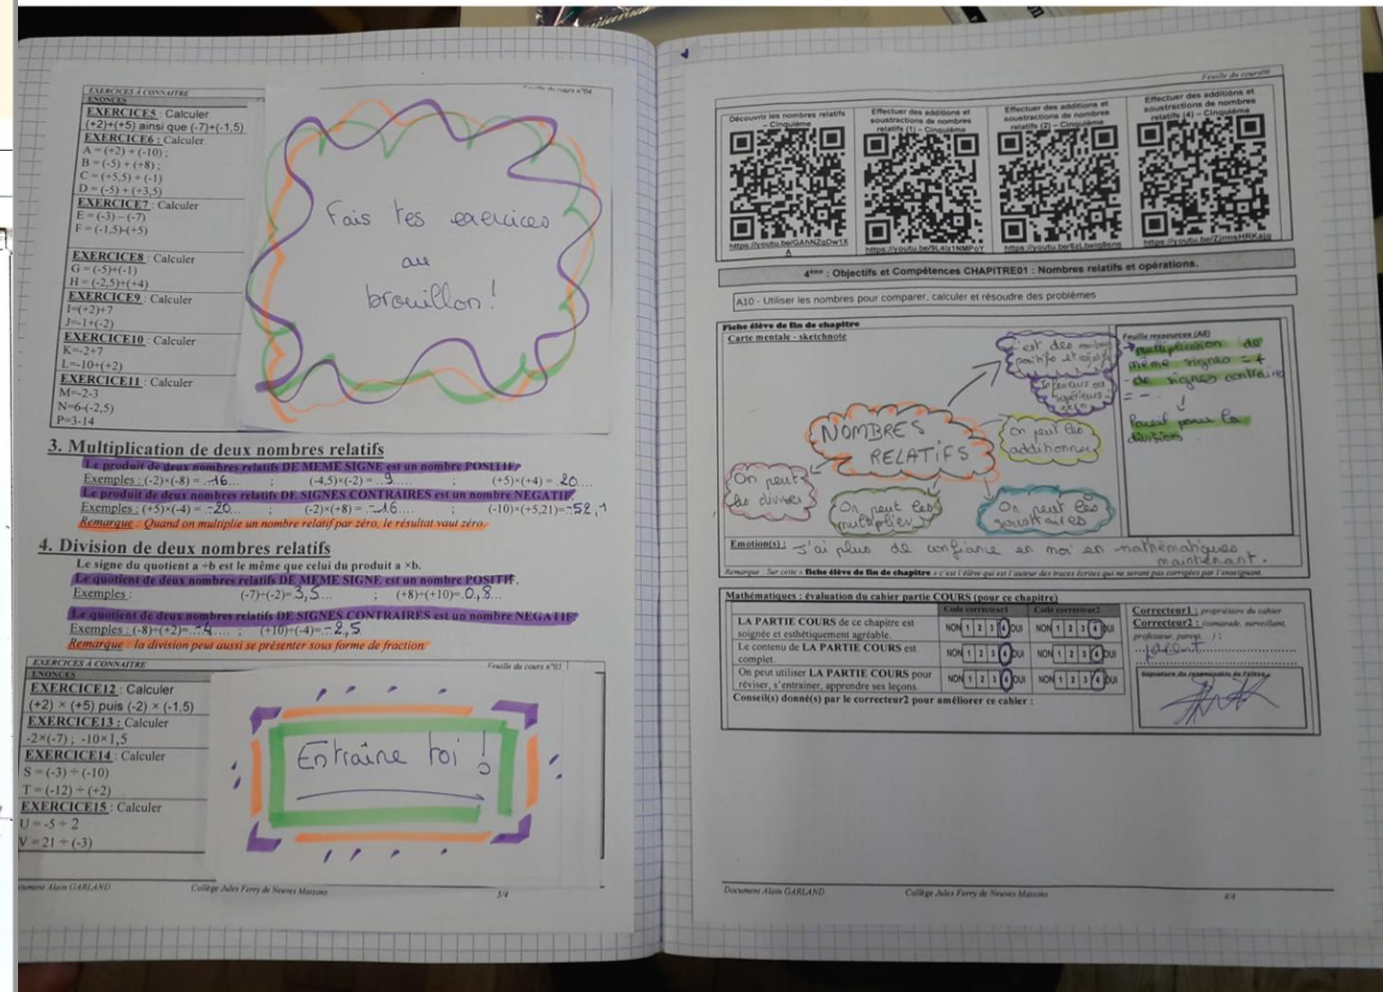 EXERCICES À CONNAITRE
ENONCES
EXERCICE5 : Calculer
(+2)+(+5) ainsi que (-7)+(-1,5)
EXERCICE6 : Calculer
A = (+2) + (-10) ;
B = (-5) + (+8) ;
C = (+5,5) + (-1)
D = (-5) + (+3,5)
EXERCICE7 : Calculer
E = (-3) – (-7)
F = (-1,5)-(+5)
EXERCICE8 : Calculer
G = (-5)+(-1)
H = (-2,5)+(+4)
EXERCICE9 : Calculer
I=(+2)+7
J=-1+(-2)
EXERCICE10 : Calculer
K=-2+7
L=-10+(+2)
EXERCICE11 : Calculer
M=-2-3
N=6-(-2,5)
P=3-14
Fais tes exercices
au
brouillon !
3. Multiplication de deux nombres relatifs
Le produit de deux nombres relatifs DE MEME SIGNE est un nombre POSITIF.
Exemples : (-2)×(-8) = 16 ; (-4,5)×(-2) = 9 ; (+5)×(+4) = 20
Le produit de deux nombres relatifs DE SIGNES CONTRAIRES est un nombre NEGATIF.
Exemples : (+5)×(-4) = -20 ; (-2)×(+8) = -16 ; (-10)×(+5,21)=-52,1
Remarque : Quand on multiplie un nombre relatif par zéro, le résultat vaut zéro.
4. Division de deux nombres relatifs
Le signe du quotient a ÷b est le même que celui du produit a ×b.
Le quotient de deux nombres relatifs DE MEME SIGNE est un nombre POSITIF.
Exemples : (-7)÷(-2)= 3,5 ; (+8)÷(+10)= 0,8
Le quotient de deux nombres relatifs DE SIGNES CONTRAIRES est un nombre NEGATIF.
Exemples : (-8)÷(+2)= -4 ; (+10)÷(-4)= -2,5
Remarque : la division peut aussi se présenter sous forme de fraction
EXERCICES À CONNAITRE
Feuille du cours n°05
ENONCES
EXERCICE12 : Calculer
(+2) × (+5) puis (-2) × (-1,5)
EXERCICE13 : Calculer
-2×(-7) ; -10×1,5
EXERCICE14 : Calculer
S = (-3) ÷ (-10)
T = (-12) ÷ (+2)
EXERCICE15 : Calculer
U = -5 ÷ 2
V = 21 ÷ (-3)
Entraîne toi !
Document Alain GARLAND
Collège Jules Ferry de Neuves Maisons
3/4
Découvrir les nombres relatifs
– Cinquième
Effectuer des additions et
soustractions de nombres
relatifs (1) – Cinquième
Effectuer des additions et
soustractions de nombres
relatifs (2) – Cinquième
Effectuer des additions et
soustractions de nombres
relatifs (4) – Cinquième
4ème : Objectifs et Compétences CHAPITRE01 : Nombres relatifs et opérations.
A10 - Utiliser les nombres pour comparer, calculer et résoudre des problèmes
Fiche élève de fin de chapitre
Carte mentale - sketchnote
Feuille ressources (A8)
NOMBRES
RELATIFS
On peut les
additionner
On peut
les diviser
On peut les
multiplier
On peut les
soustraires
multiplication de
même signes = +
- de signes contraire
= -
Pareil pour la
division
Emotion(s) : J'ai plus de confiance en moi en mathématiques
maintenant.
Remarque : Sur cette « fiche élève de fin de chapitre » c'est l'élève qui est l'auteur des traces écrites qui ne seront pas corrigées par l'enseignant.
Mathématiques : évaluation du cahier partie COURS (pour ce chapitre)
Code correcteur1
Code correcteur2
LA PARTIE COURS de ce chapitre est
soignée et esthétiquement agréable.
NON 1 2 3 4 OUI
NON 1 2 3 4 OUI
Le contenu de LA PARTIE COURS est
complet.
NON 1 2 3 4 OUI
NON 1 2 3 4 OUI
On peut utiliser LA PARTIE COURS pour
réviser, s'entrainer, apprendre ses leçons.
NON 1 2 3 4 OUI
NON 1 2 3 4 OUI
Conseil(s) donné(s) par le correcteur2 pour améliorer ce cahier :
Correcteur1 : propriétaire du cahier
Correcteur2 : (camarade, surveillant,
professeur, parent, ...) :
parent
Signature du responsable de l'élève
Document Alain GARLAND
Collège Jules Ferry de Neuves Maisons
4/4